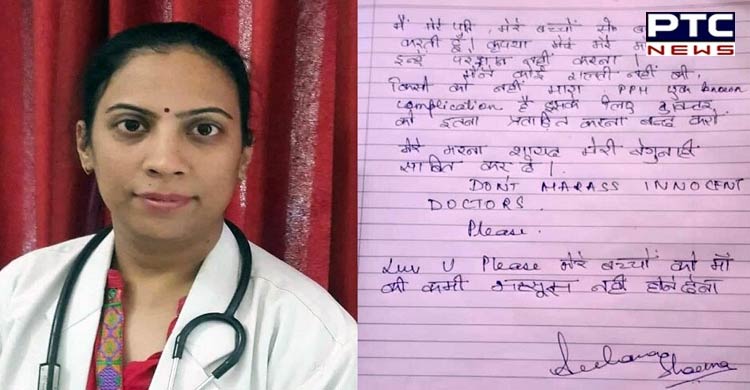 PTC
NEWS
मैं मेरे पति, मेरे बच्चों से
करती हूँ। कृपया मेरे मेरे
इन्हें परेशान नहीं करना।
मैंने कोई गलती नहीं की,
किसी को नहीं मारा, PPH एक known
complication है, इसके लिए डॉक्टर
को इतना प्रताड़ित करना बन्द करो
मेरा मरना शायद मेरी बेगुनाही
साबित कर दे।
DON'T HARASS INNOCENT
DOCTORS.
Please.
Luv U Please मेरे बच्चों को माँ
की कमी महसूस नहीं होने देना
Sharma